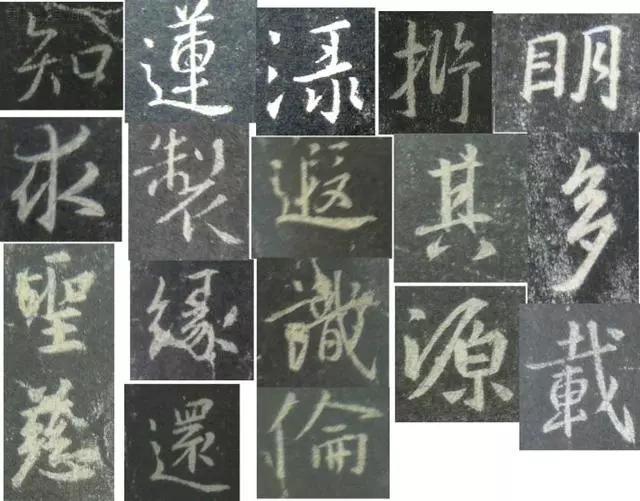 知蓮淥明
求製遐其多
聖緣識源載
慈還倫